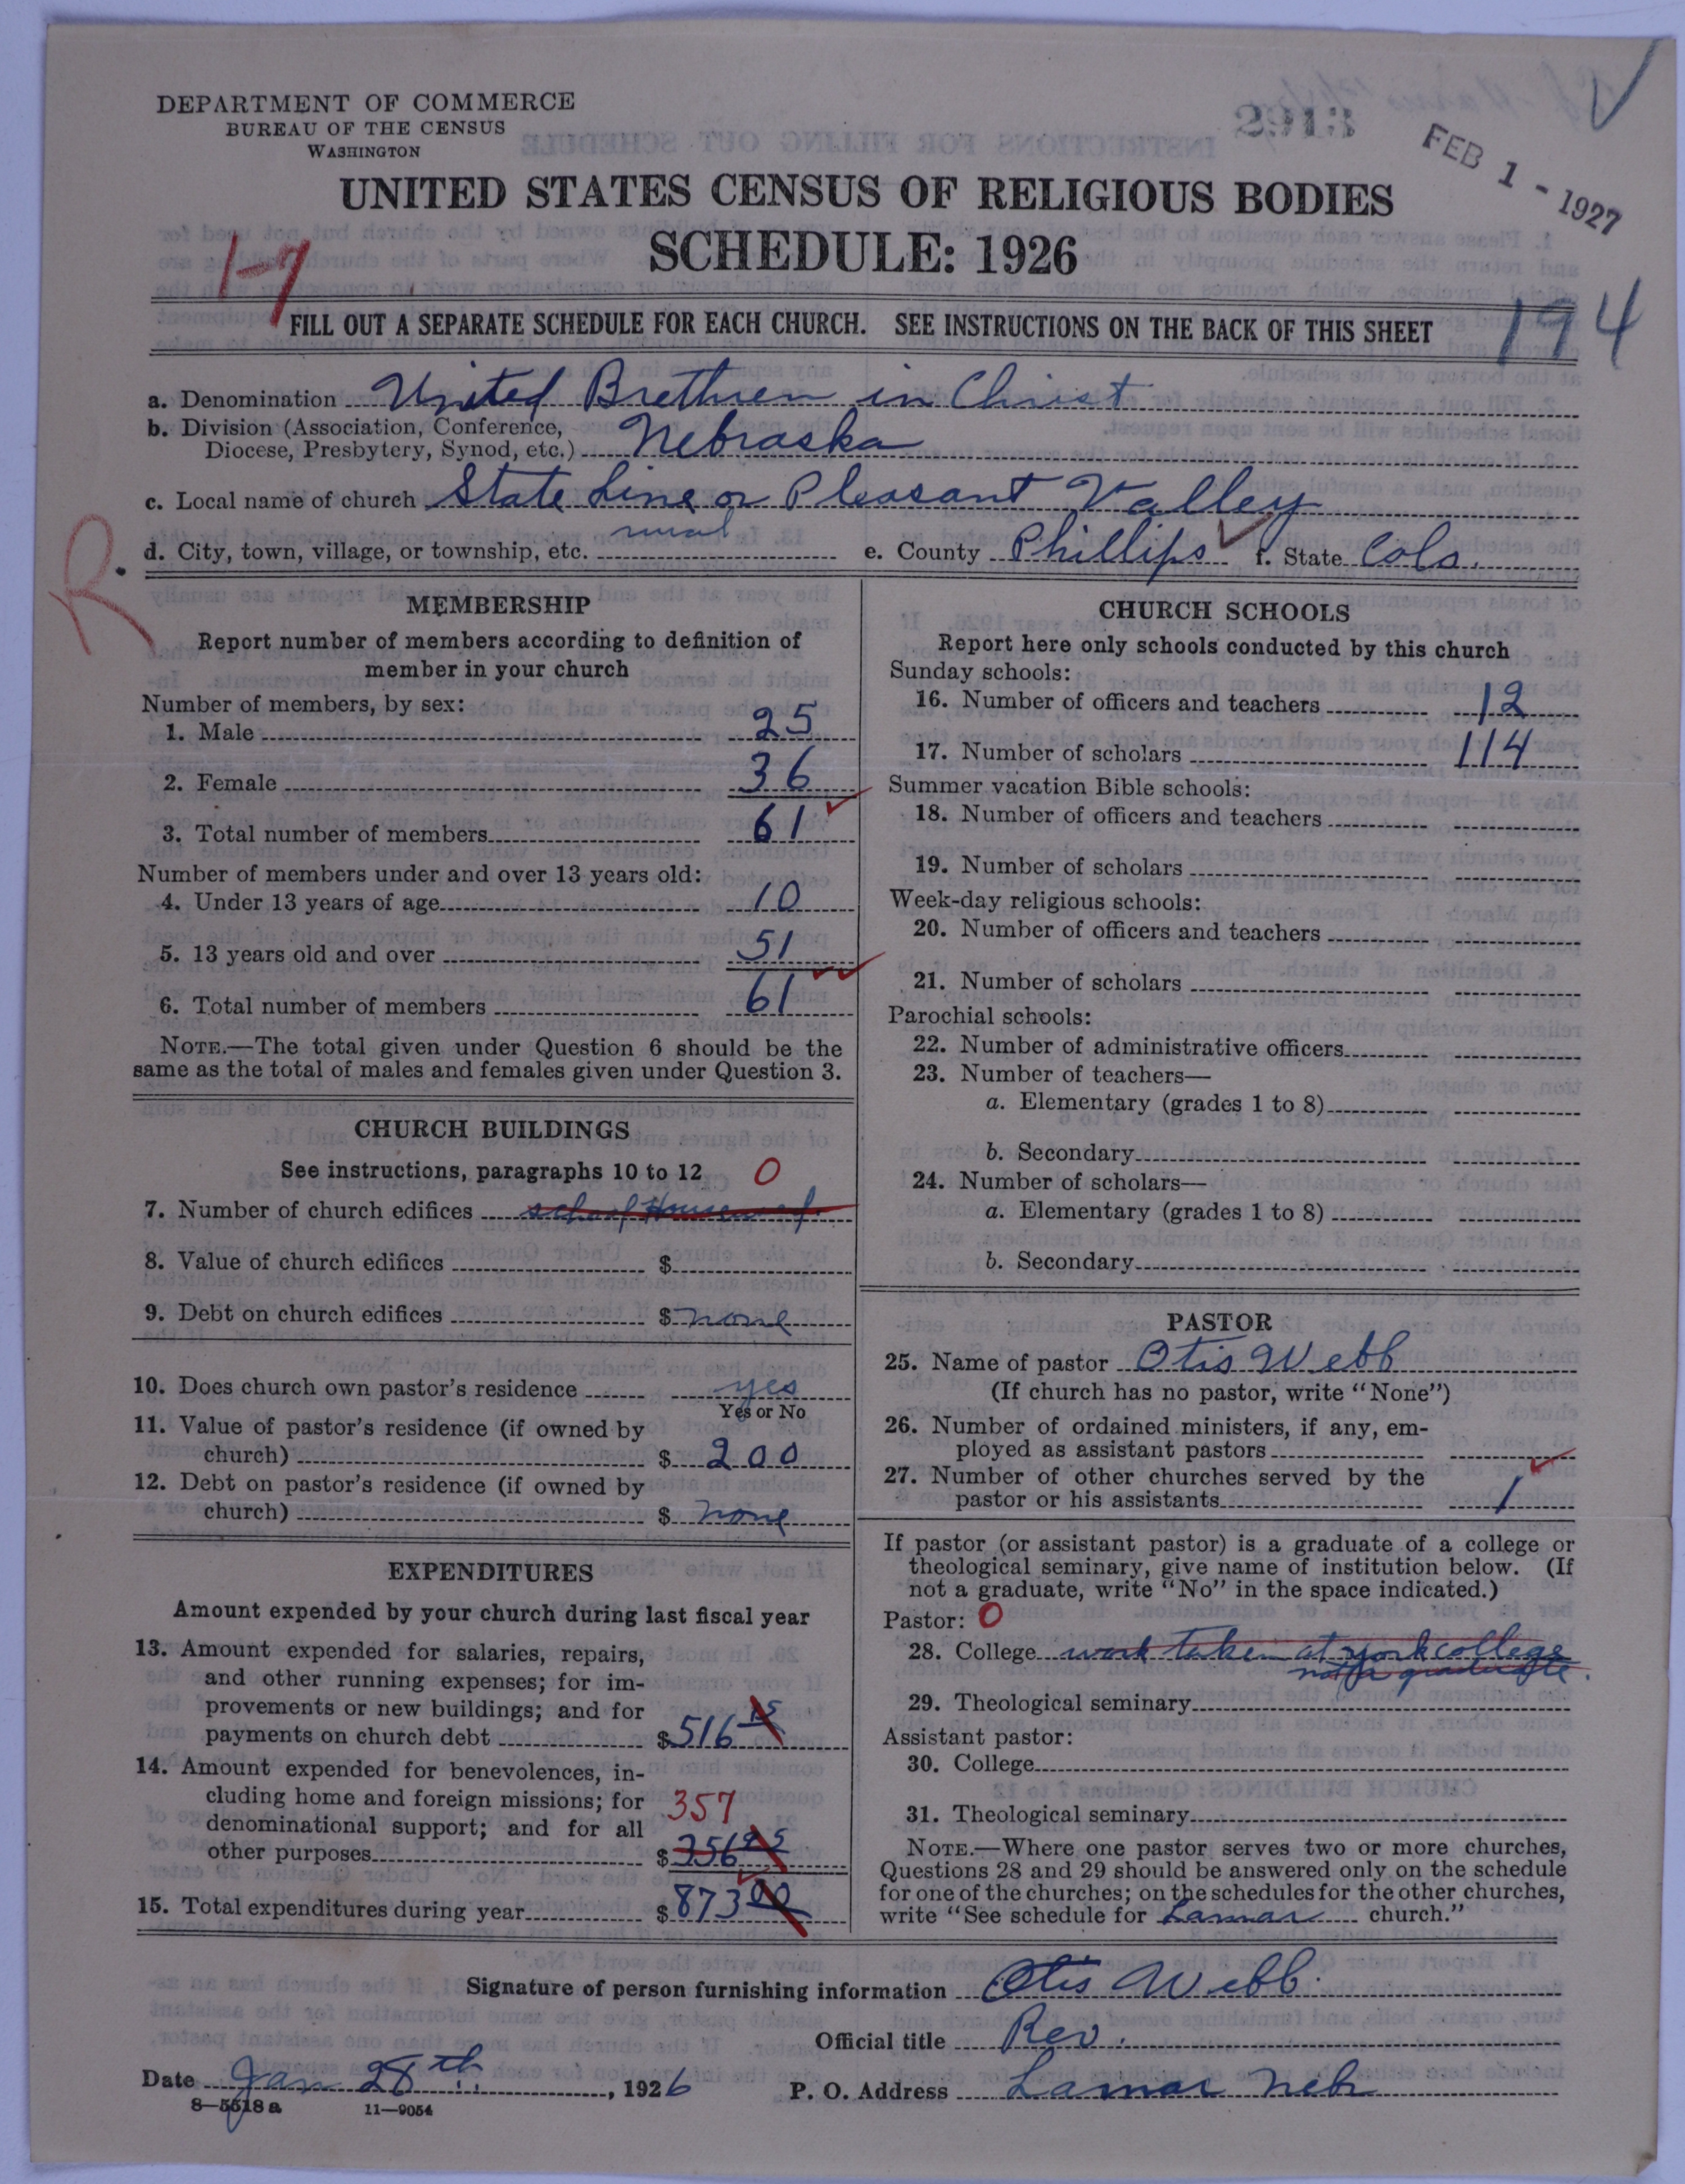 DEPARTMENT OF COMMERCE
BUREAU OF THE CENSUS
WASHINGTON
2913
FEB 1 - 1927
UNITED STATES CENSUS OF RELIGIOUS BODIES
SCHEDULE: 1926
1-7
194
FILL OUT A SEPARATE SCHEDULE FOR EACH CHURCH. SEE INSTRUCTIONS ON THE BACK OF THIS SHEET
a. Denomination United Brethren in Christ
b. Division (Association, Conference,
Diocese, Presbytery, Synod, etc.) Nebraska
c. Local name of church State Line or Pleasant Valley
R.
d. City, town, village, or township, etc. rural e. County Phillips f. State Colo.
MEMBERSHIP
Report number of members according to definition of
member in your church
Number of members, by sex:
1. Male 25
2. Female 36
3. Total number of members 61
Number of members under and over 13 years old:
4. Under 13 years of age 10
5. 13 years old and over 51
6. Total number of members 61
NOTE.—The total given under Question 6 should be the
same as the total of males and females given under Question 3.
CHURCH BUILDINGS
See instructions, paragraphs 10 to 12 0
7. Number of church edifices school House used.
8. Value of church edifices $
9. Debt on church edifices $ none
10. Does church own pastor's residence yes
Yes or No
11. Value of pastor's residence (if owned by
church) $ 200
12. Debt on pastor's residence (if owned by
church) $ none
EXPENDITURES
Amount expended by your church during last fiscal year
13. Amount expended for salaries, repairs,
and other running expenses; for im-
provements or new buildings; and for
payments on church debt $516 15
14. Amount expended for benevolences, in-
cluding home and foreign missions; for 357
denominational support; and for all
other purposes $ 356
15. Total expenditures during year $ 873 00
CHURCH SCHOOLS
Report here only schools conducted by this church
Sunday schools:
16. Number of officers and teachers 12
17. Number of scholars 114
Summer vacation Bible schools:
18. Number of officers and teachers
19. Number of scholars
Week-day religious schools:
20. Number of officers and teachers
21. Number of scholars
Parochial schools:
22. Number of administrative officers
23. Number of teachers—
a. Elementary (grades 1 to 8)
b. Secondary
24. Number of scholars—
a. Elementary (grades 1 to 8)
b. Secondary
PASTOR
25. Name of pastor Otis Webb
(If church has no pastor, write "None")
26. Number of ordained ministers, if any, em-
ployed as assistant pastors
27. Number of other churches served by the
pastor or his assistants 1
If pastor (or assistant pastor) is a graduate of a college or
theological seminary, give name of institution below. (If
not a graduate, write "No" in the space indicated.)
Pastor: 0
28. College work taken at york college
not a graduate.
29. Theological seminary
Assistant pastor:
30. College
31. Theological seminary
NOTE.—Where one pastor serves two or more churches,
Questions 28 and 29 should be answered only on the schedule
for one of the churches; on the schedules for the other churches,
write "See schedule for Lamar church."
Signature of person furnishing information Otis Webb.
Official title Rev.
Date Jan 28th, 1926 P. O. Address Lamar Nebr
8—5518 a 11—9054